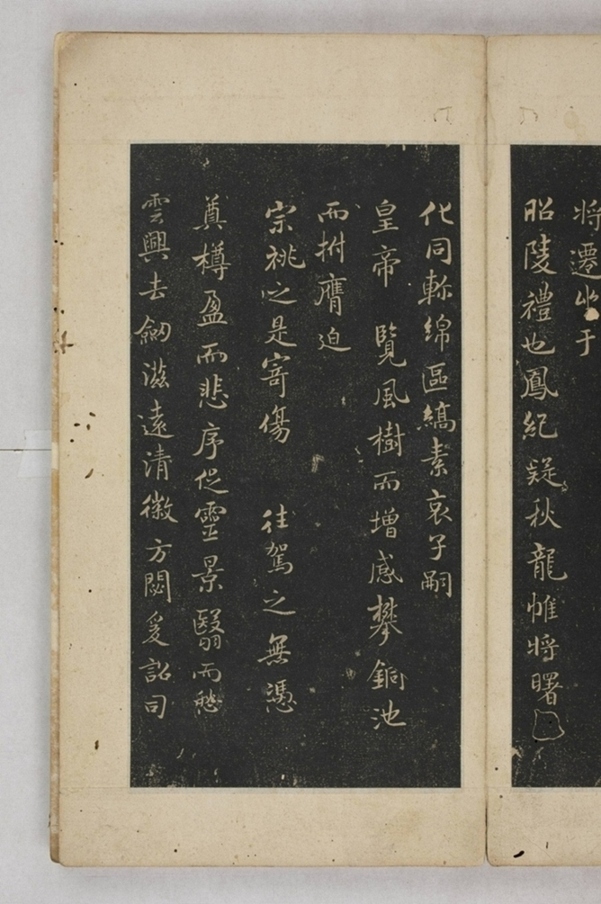 將遷坐于
昭陵禮也鳳紀疑秋龍帷將曙
化同軫綿區縞素哀子嗣
皇帝 覽風樹而增感攀銅池
而拊膺迫
宗祧之是寄傷 往駕之無憑
奠樽盈而悲序促靈景翳而愁
雲興去劒滋遠清徽方閟爰詔司